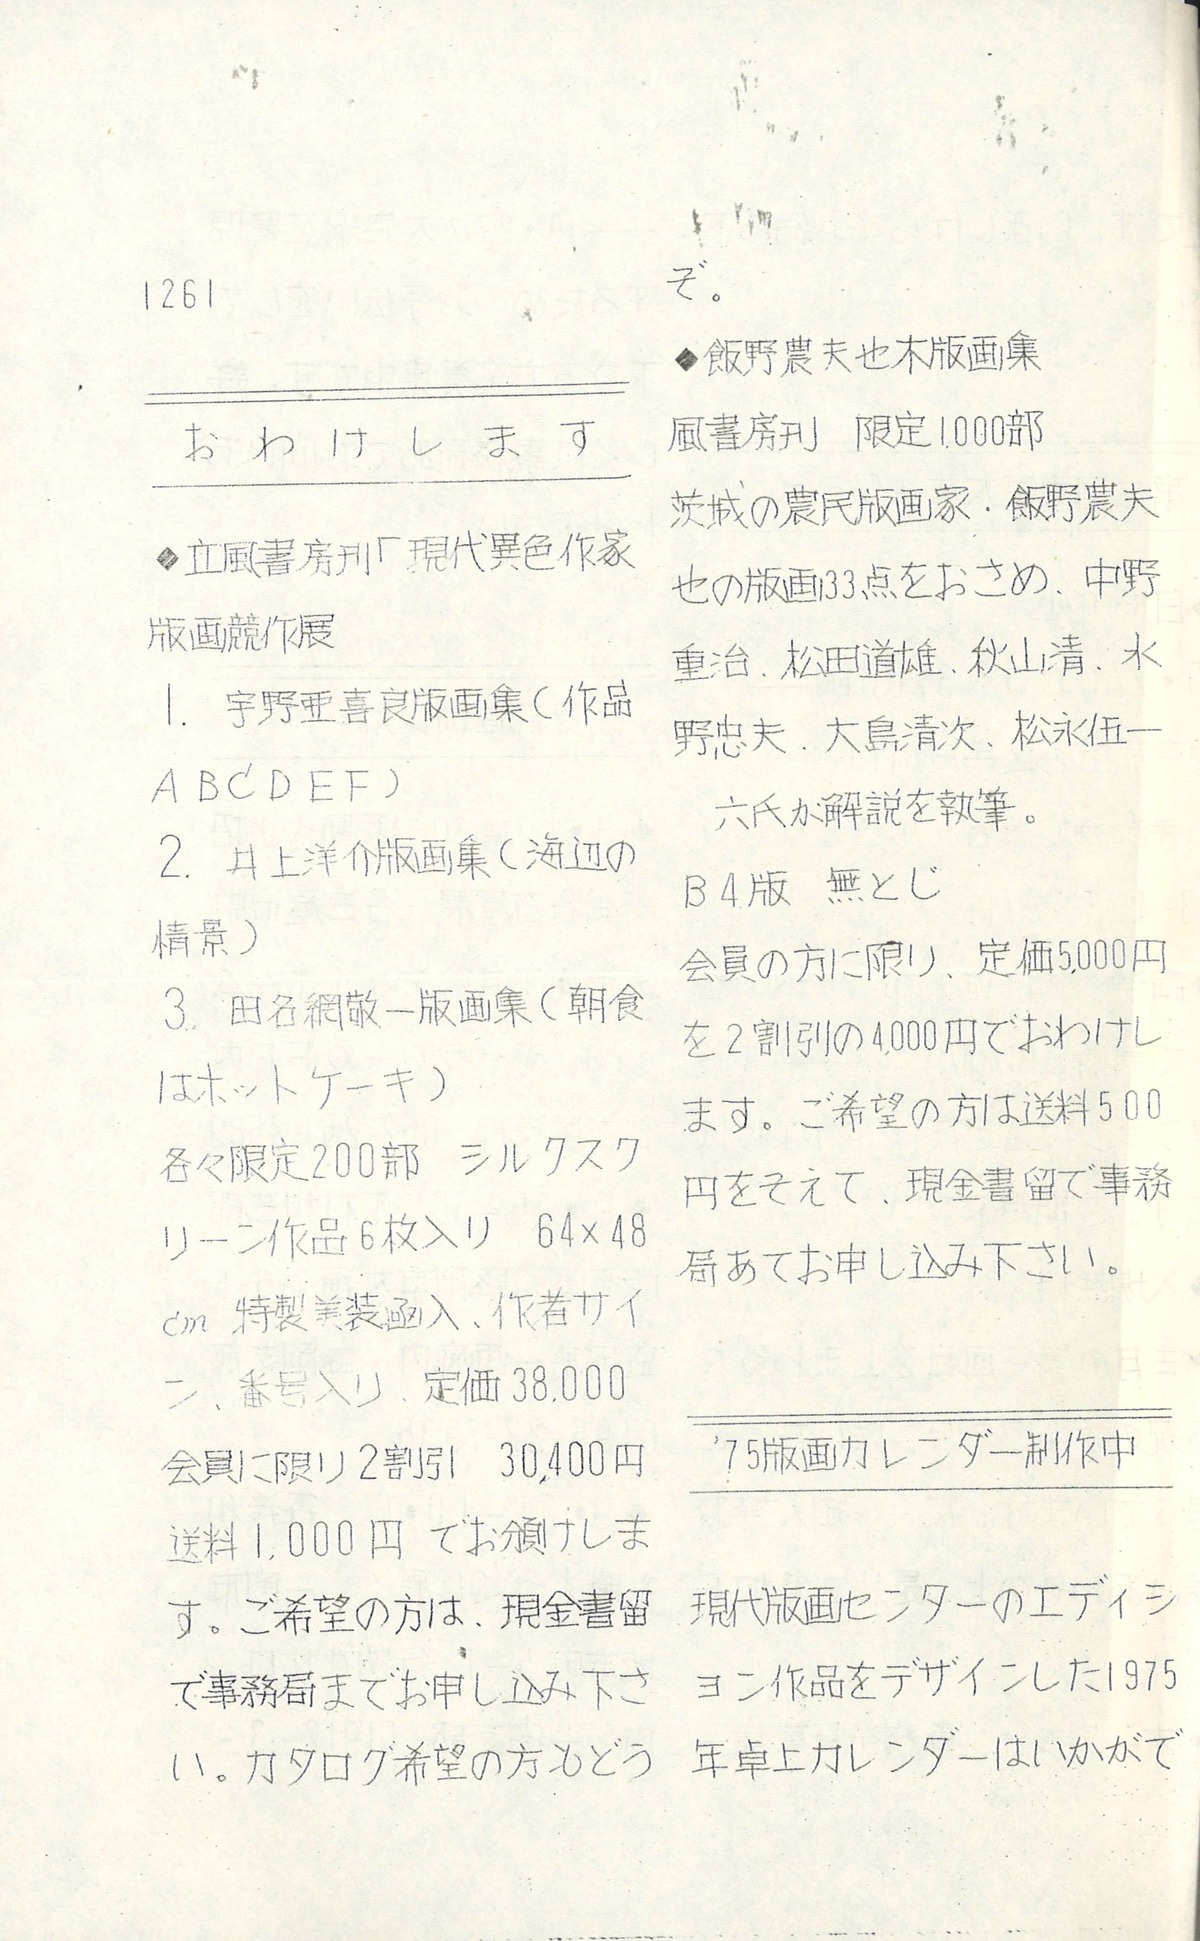 1261
おわけします
◆立風書房刊「現代異色作家
版画競作展
1. 宇野亜喜良版画集(作品
ABCDEF)
2. 井上洋介版画集(海辺の
情景)
3. 田名網敬一版画集(朝食
はホットケーキ)
各々限定200部 シルクスク
リーン作品6枚入り 64×48
cm 特製美装函入、作者サイ
ン、番号入り、定価38,000
会員に限り2割引 30,400円
送料1,000円 でお頒けしま
す。ご希望の方は、現金書留
で事務局までお申し込み下さ
い。カタログ希望の方もどう
ぞ。
◆飯野農夫也木版画集
風書房刊 限定1,000部
茨城の農民版画家・飯野農夫
也の版画33点をおさめ、中野
重治、松田道雄、秋山清、水
野忠夫、大島清次、松永伍一
六氏が解説を執筆。
B4版 無とじ
会員の方に限り、定価5,000円
を2割引の4,000円でおわけし
ます。ご希望の方は送料500
円をそえて、現金書留で事務
局あてお申し込み下さい。
'75版画カレンダー制作中
現代版画センターのエディシ
ョン作品をデザインした1975
年卓上カレンダーはいかがで